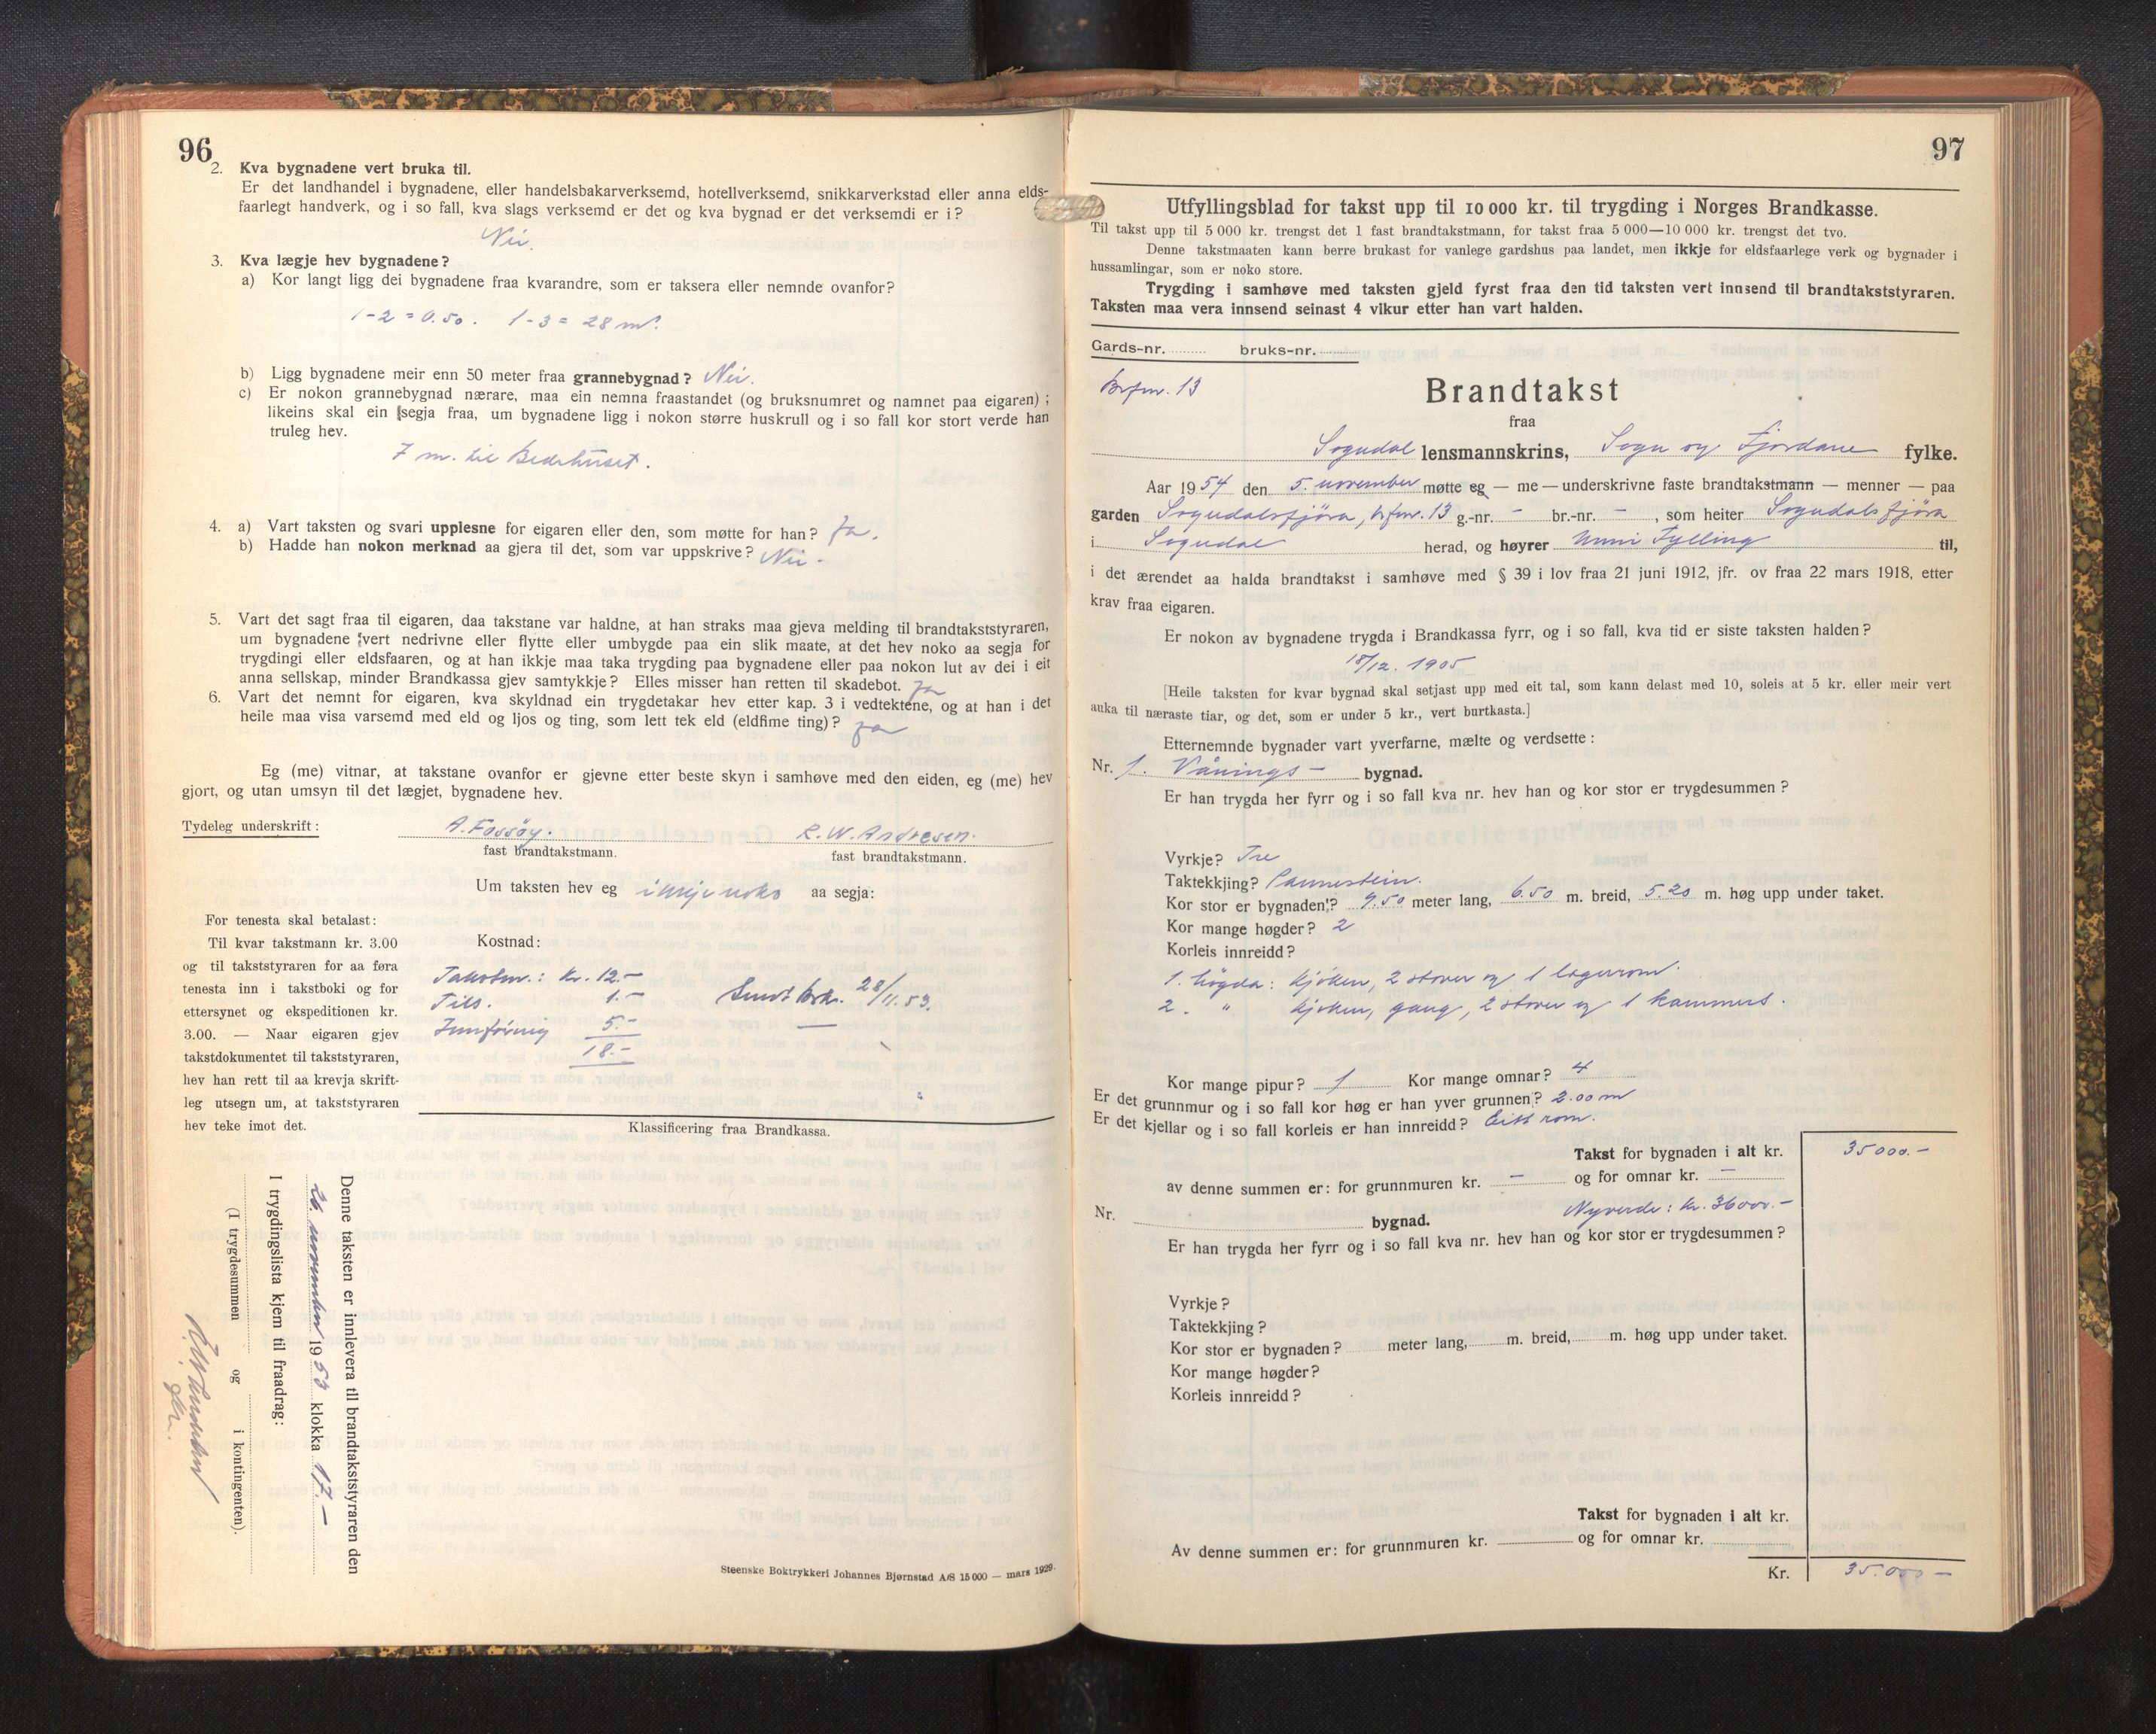 96
2. Kva bygnadene vert bruka til.
Er det landhandel i bygnadene, eller handelsbakarverksemd, hotellverksemd, snikkarverkstad eller anna elds-
faarlegt handverk, og i so fall, kva slags verksemd er det og kva bygnad er det verksemdi er i?
Nei.
3. Kva lægje hev bygnadene?
a) Kor langt ligg dei bygnadene fraa kvarandre, som er taksera eller nemnde ovanfor?
1-2 = 0.50. 1-3 = 28 m.
b) Ligg bygnadene meir enn 50 meter fraa grannebygnad? Nei.
c) Er nokon grannebygnad nærare, maa ein nemna fraastandet (og bruksnumret og namnet paa eigaren);
likeins skal ein segja fraa, um bygnadene ligg i nokon større huskrull og i so fall kor stort verde han
truleg hev.
7 m. til Bedehuset.
4. a) Vart taksten og svari upplesne for eigaren eller den, som møtte for han? Ja.
b) Hadde han nokon merknad aa gjera til det, som var uppskrive? Nei.
5. Vart det sagt fraa til eigaren, daa takstane var haldne, at han straks maa gjeva melding til brandtakststyraren,
um bygnadene vert nedrivne eller flytte eller umbygde paa ein slik maate, at det hev noko aa segja for
trygdingi eller eldsfaaren, og at han ikkje maa taka trygding paa bygnadene eller paa nokon lut av dei i eit
anna sellskap, minder Brandkassa gjev samtykkje? Elles misser han retten til skadebot. Ja
6. Vart det nemnt for eigaren, kva skyldnad ein trygdetakar hev etter kap. 3 i vedtektene, og at han i det
heile maa visa varsemd med eld og ljos og ting, som lett tek eld (eldfime ting)? Ja
Eg (me) vitnar, at takstane ovanfor er gjevne etter beste skyn i samhøve med den eiden, eg (me) hev
gjort, og utan umsyn til det lægjet, bygnadene hev.
Tydeleg underskrift: A. Fossøy. R. W. Andresen.
fast brandtakstmann. fast brandtakstmann.
Um taksten hev eg ikkje noko aa segja:
For tenesta skal betalast:
Til kvar takstmann kr. 3.00
og til takststyraren for aa føra
tenesta inn i takstboki og for
ettersynet og ekspeditionen kr.
3.00. — Naar eigaren gjev
takstdokumentet til takststyraren,
hev han rett til aa krevja skrift-
leg utsegn um, at takststyraren
hev teke imot det.
Kostnad:
Takstm.: kr. 12.-
Tils. 1.-
Innføring 5.-
18.-
Sendt 28/11.53.
Klassificering fraa Brandkassa.
Denne taksten er innlevera til brandtakststyraren den
26. november 1953 klokka 17.-
I trygdingslista kjem til fraadrag:
(I trygdesummen og i kontingenten).
Steenske Boktrykkeri Johannes Bjørnstad A/S 15 000 — mars 1929.
97
Utfyllingsblad for takst upp til 10 000 kr. til trygding i Norges Brandkasse.
Til takst upp til 5 000 kr. trengst det 1 fast brandtakstmann, for takst fraa 5 000—10 000 kr. trengst det tvo.
Denne takstmaaten kann berre brukast for vanlege gardshus paa landet, men ikkje for eldsfaarlege verk og bygnader i
hussamlingar, som er noko store.
Trygding i samhøve med taksten gjeld fyrst fraa den tid taksten vert innsend til brandtakststyraren.
Taksten maa vera innsend seinast 4 vikur etter han vart halden.
Gards-nr. bruks-nr.
Brfnr. 13
Brandtakst
fraa
Sogndal lensmannskrins, Sogn og Fjordane fylke.
Aar 1954 den 5. november møtte eg — me — underskrivne faste brandtakstmann — menner — paa
garden Sogndalsfjøra, brfnr. 13 g.-nr. - br.-nr. - , som heiter Sogndalsfjøra
i Sogndal herad, og høyrer Unni Fylling til,
i det ærendet aa halda brandtakst i samhøve med § 39 i lov fraa 21 juni 1912, jfr. ov fraa 22 mars 1918, etter
krav fraa eigaren.
Er nokon av bygnadene trygda i Brandkassa fyrr, og i so fall, kva tid er siste taksten halden?
18/12. 1905
[Heile taksten for kvar bygnad skal setjast upp med eit tal, som kann delast med 10, soleis at 5 kr. eller meir vert
auka til næraste tiar, og det, som er under 5 kr., vert burtkasta.]
Etternemnde bygnader vart yverfarne, mælte og verdsette:
Nr. 1. Vånings- bygnad.
Er han trygda her fyrr og i so fall kva nr. hev han og kor stor er trygdesummen?
Vyrkje? Tre
Taktekkjing? Pannestein.
Kor stor er bygnaden? 9.50 meter lang, 6.50 m. breid, 5.20 m. høg upp under taket.
Kor mange høgder? 2
Korleis innreidd?
1. høgda: kjøken, 2 stover og 1 lagerrom.
2. " kjøken, gang, 2 stover og 1 kammers.
Kor mange pipur? 1 Kor mange omnar? 4
Er det grunnmur og i so fall kor høg er han yver grunnen? 2.00 m
Er det kjellar og i so fall korleis er han innreidd? Eitt rom.
Takst for bygnaden i alt kr. 35000.-
av denne summen er: for grunnmuren kr. - og for omnar kr. -
Nyverde: kr. 36000.-
Nr. bygnad.
Er han trygda her fyrr og i so fall kva nr. hev han og kor stor er trygdesummen?
Vyrkje?
Taktekkjing?
Kor stor er bygnaden? meter lang, m. breid, m. høg upp under taket.
Kor mange høgder?
Korleis innreidd?
Takst for bygnaden i alt kr.
Av denne summen er: for grunnmuren kr. og for omnar kr.
Kr. 35.000 -